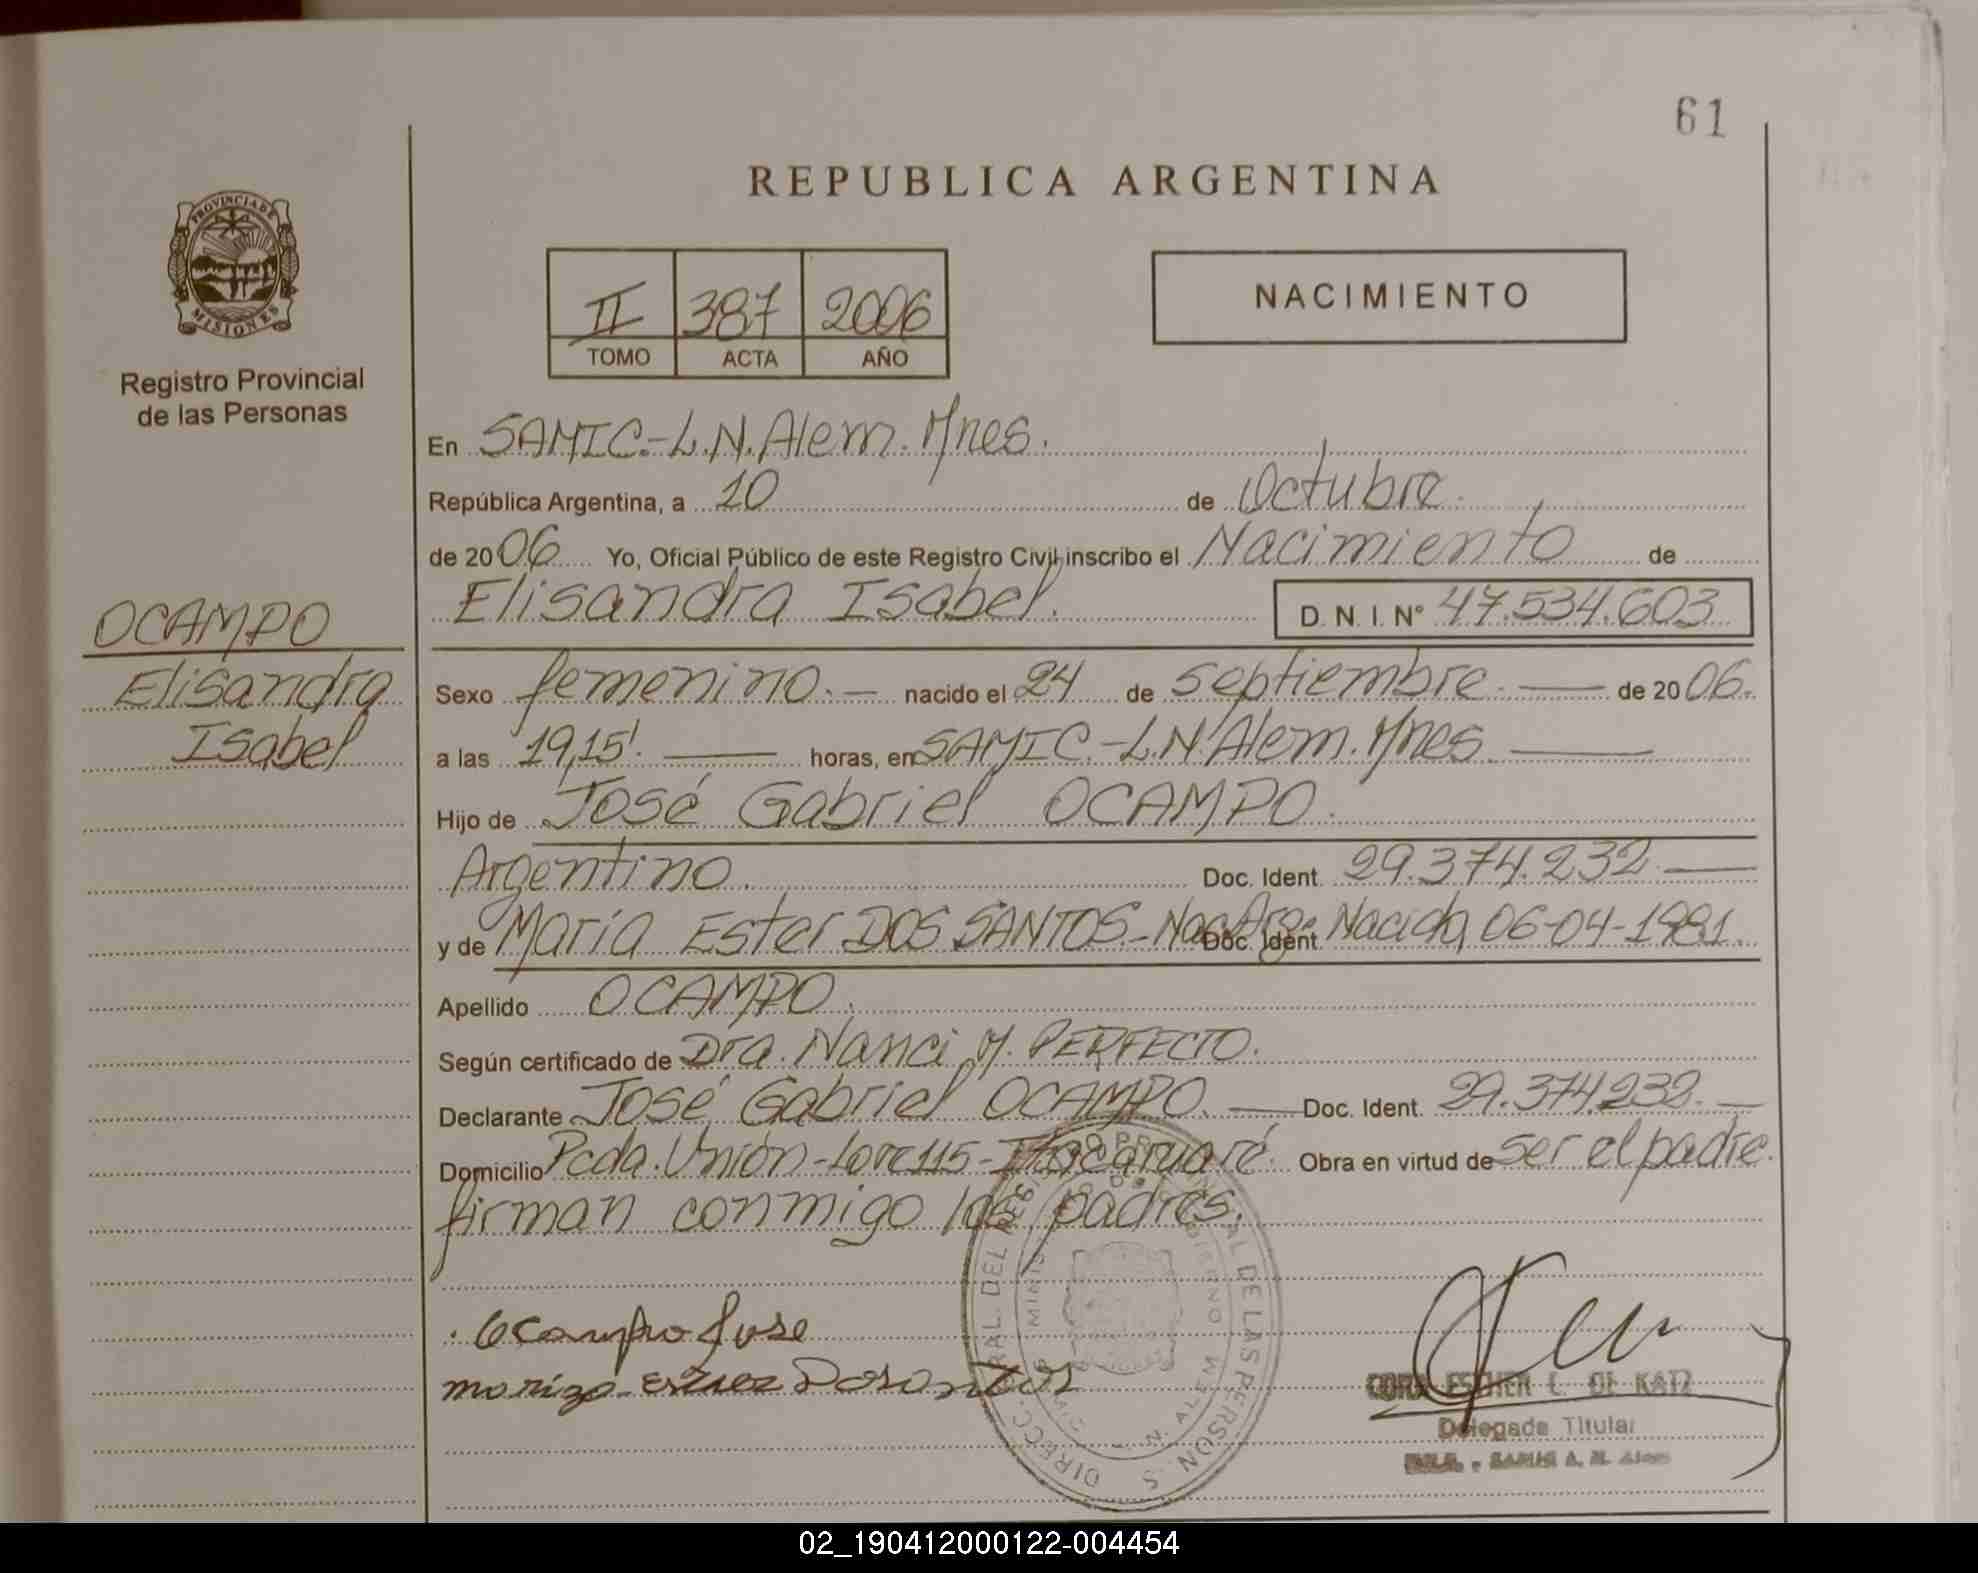 61
REPUBLICA ARGENTINA
PROVINCIA DE
MISIONES
Registro Provincial
de las Personas
II 387 2006
TOMO ACTA AÑO
NACIMIENTO
En SAMIC.-L.N.Alem.Mnes.
República Argentina, a 10 de Octubre.
de 2006 Yo, Oficial Público de este Registro Civil inscribo el Nacimiento de
Elisandra Isabel. D.N.I. Nº 47.534.603
OCAMPO
Elisandra
Isabel
Sexo femenino.- nacido el 24 de septiembre. — de 2006.
a las 19,15'. — horas, en SAMIC.-L.N.Alem.Mnes. —
Hijo de José Gabriel OCAMPO.
Argentino. Doc. Ident. 29.374.232.—
y de María Ester DOS SANTOS.-Nac.Arg. Doc. Ident. Nacida 06-04-1981.
Apellido OCAMPO.
Según certificado de Dra. Nanci M. PERFECTO.
Declarante José Gabriel OCAMPO. — Doc. Ident. 29.374.232.—
Domicilio Pcda. Unión-Lote 115-Itacaruaré. Obra en virtud de ser el padre.
firman conmigo los padres.
Ocampo Jose
DE KATZ
Delegada Titular
02_190412000122-004454